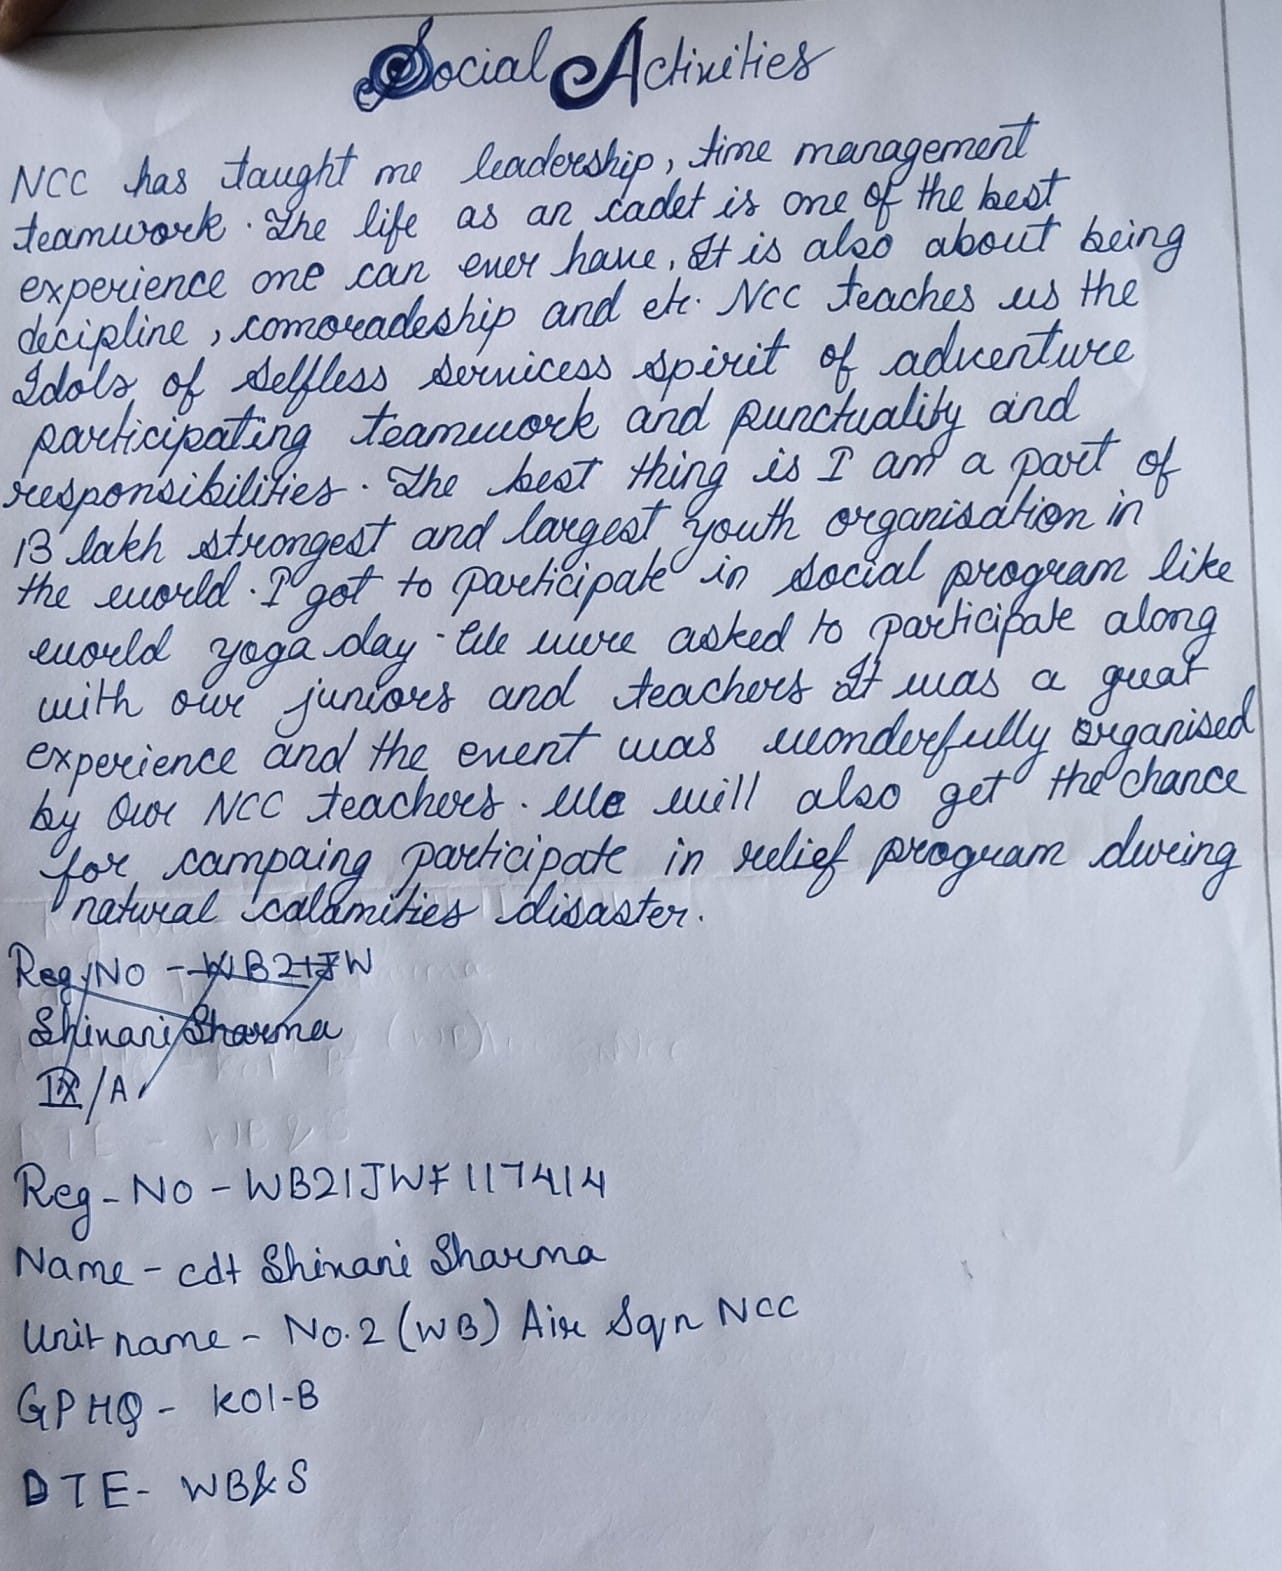 Social Activities
NCC has taught me leadership, time management
teamwork. The life as an cadet is one of the best
experience one can ever have, It is also about being
decipline, comoradeship and etc. NCC teaches us the
Idols of selfless servicess spirit of adventure
participating teamwork and punctuality and
responsibilities. The best thing is I am a part of
13 lakh strongest and largest youth organisation in
the world. I got to participate in social program like
world yoga day. We were asked to participate along
with our juniors and teachers It was a great
experience and the event was wonderfully organised
by our NCC teachers. We will also get the chance
for campaing participate in relief program during
natural calamities disaster.
Reg No - WB21JW
Shivani Sharma
IX/A
Reg-No - WB21JWF117414
Name - cdt Shivani Sharma
Unit name - No.2 (WB) Air Sqn NCC
GPHQ - KOl-B
DTE- WB&S